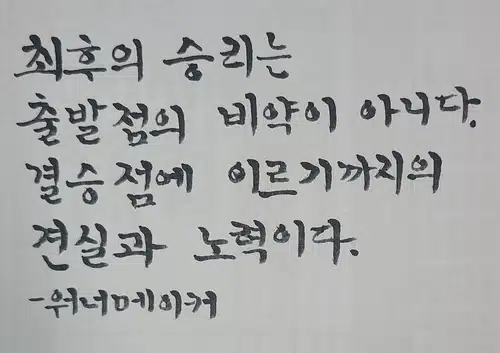 최후의 승리는
출발점의 비약이 아니다.
결승점에 이르기까지의
견실과 노력이다.
-워너메이커